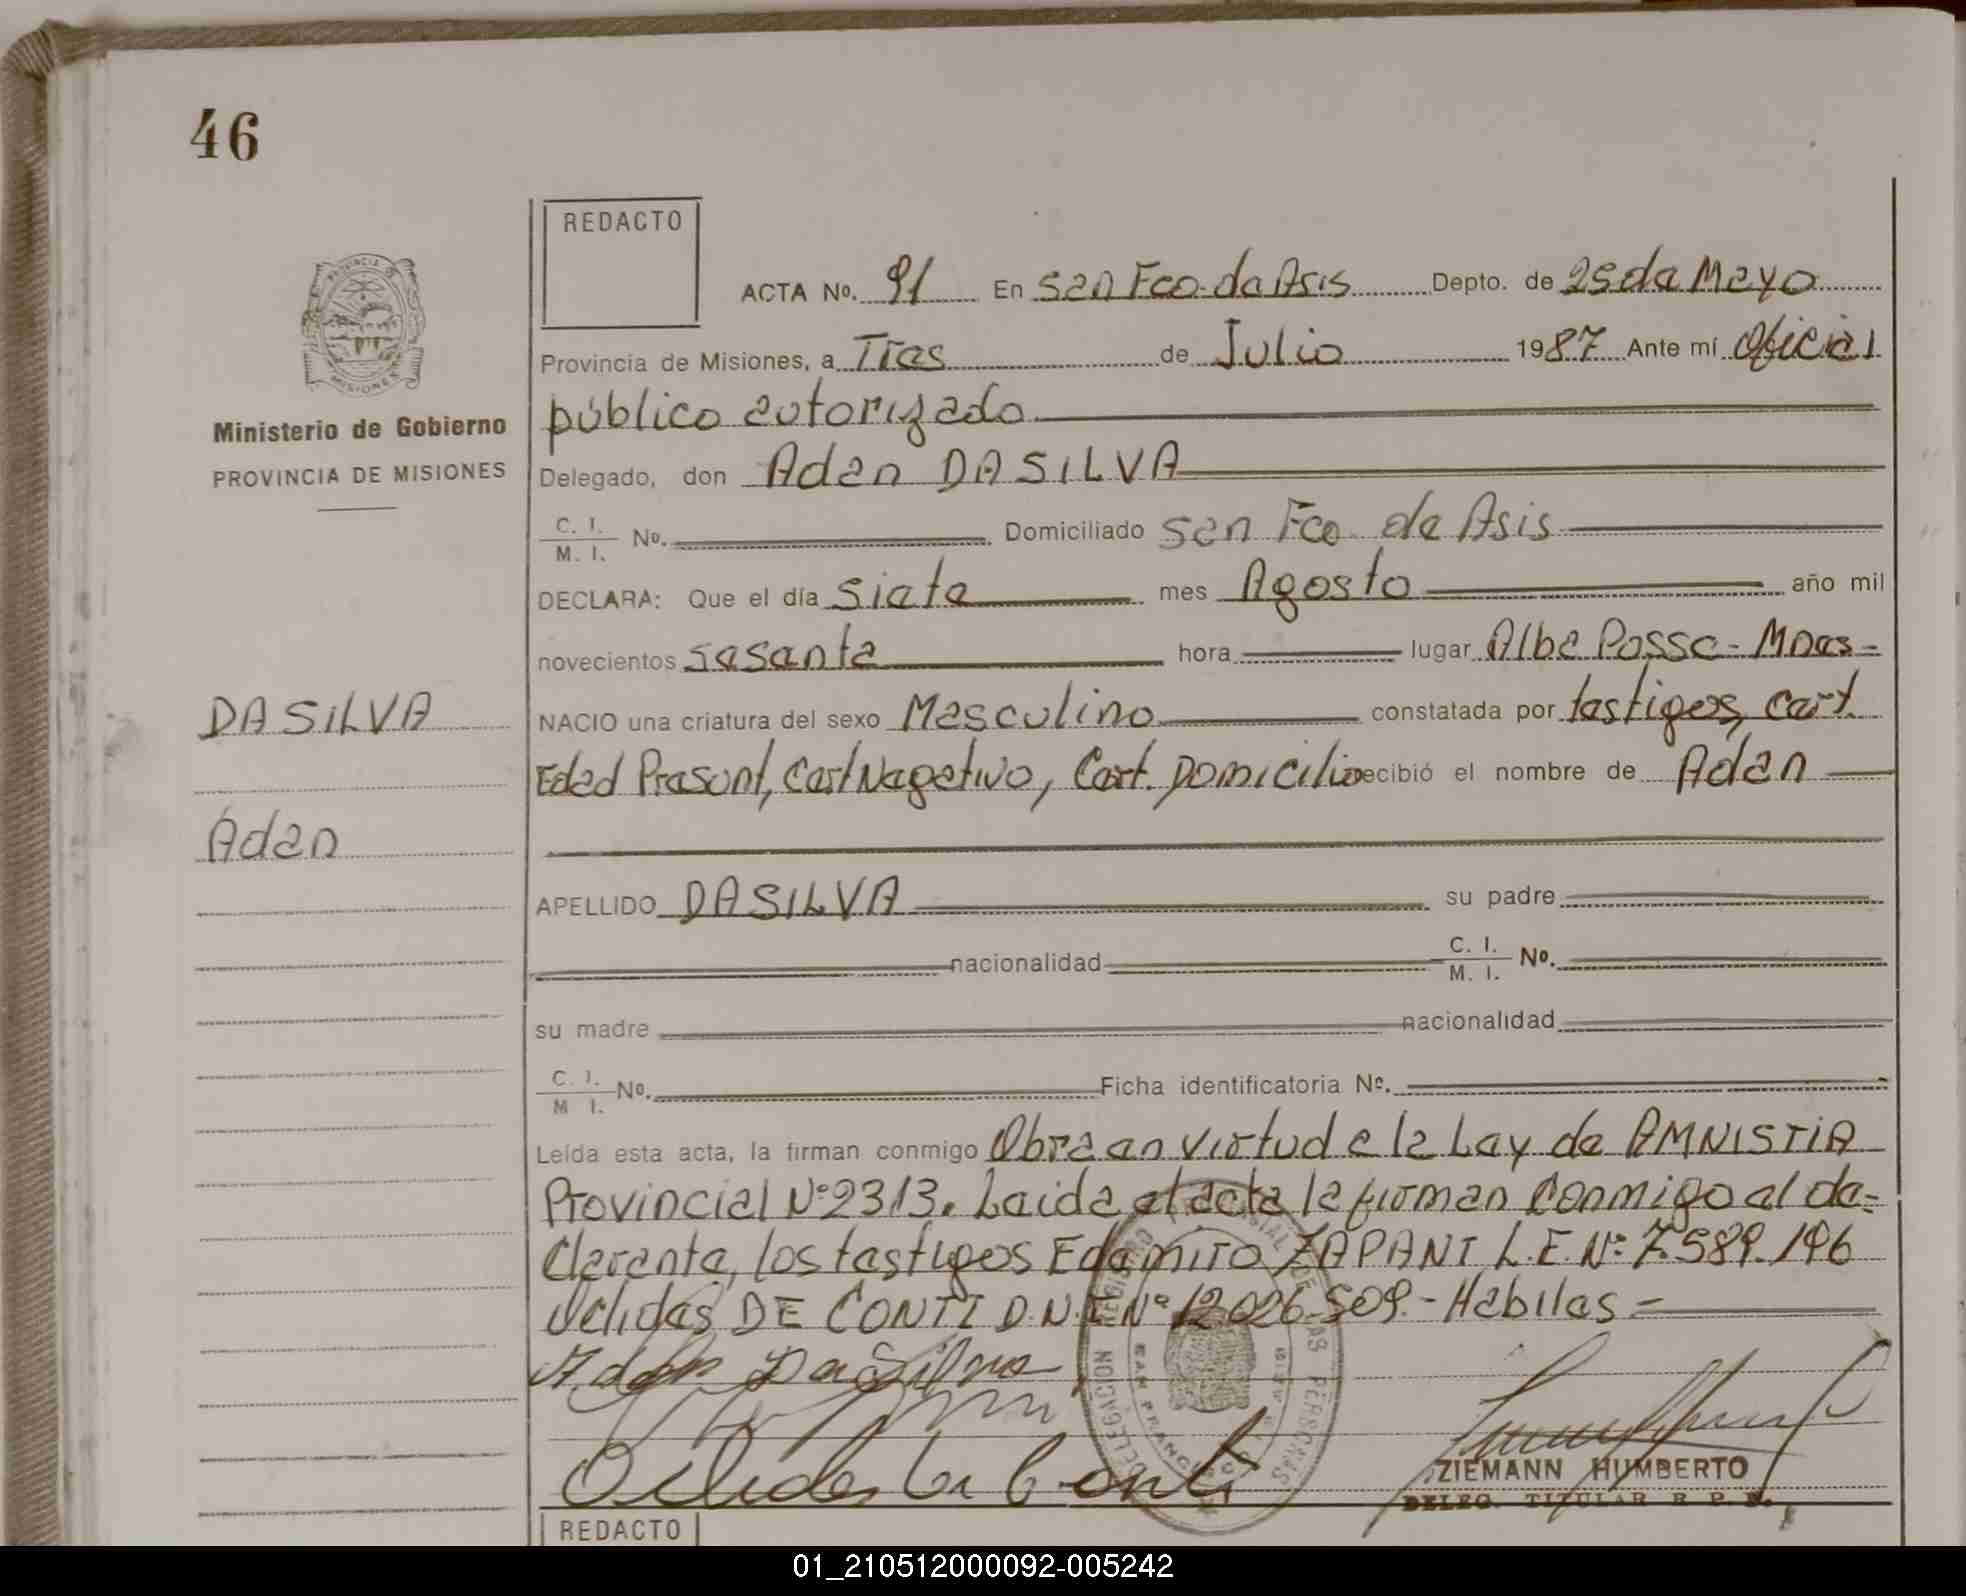 46
REDACTO
PROVINCIA D
MISIONES
ACTA No. 91 En San Fco. de Asis Depto. de 25 de Mayo
Provincia de Misiones, a Tres de Julio 1987 Ante mí Oficial
público autorizado
Ministerio de Gobierno
PROVINCIA DE MISIONES
Delegado, don Adan DASILVA
C. I. / M. I. No. Domiciliado San Fco. de Asis
DECLARA: Que el día siete mes Agosto año mil
novecientos sesenta hora lugar Alba Posse - Mnes -
DASILVA
NACIO una criatura del sexo Masculino constatada por testigos, cert.
Edad Presunt, Cert Negativo, Cert. Domicilio recibió el nombre de Adan
Adan
APELLIDO DASILVA su padre
nacionalidad C. I. / M. I. No.
su madre nacionalidad
C. I. / M I. No. Ficha identificatoria No.
Leída esta acta, la firman conmigo Obra en virtud a la Ley de AMNISTIA
Provincial Nº 2313. Leida el acta la firman Conmigo el de-
clarante, los testigos Edemiro ZAPANI L.E. Nº 7.589.196
Uclides DE CONTI D.N.I Nº 12.026.509.- Habiles =
Adan Da Silva
ZIEMANN HUMBERTO
DELEG. TITULAR R. P. P.
DELEGACION REGISTRO DE LAS PERSONAS
SAN FRANCISCO
REDACTO
01_210512000092-005242